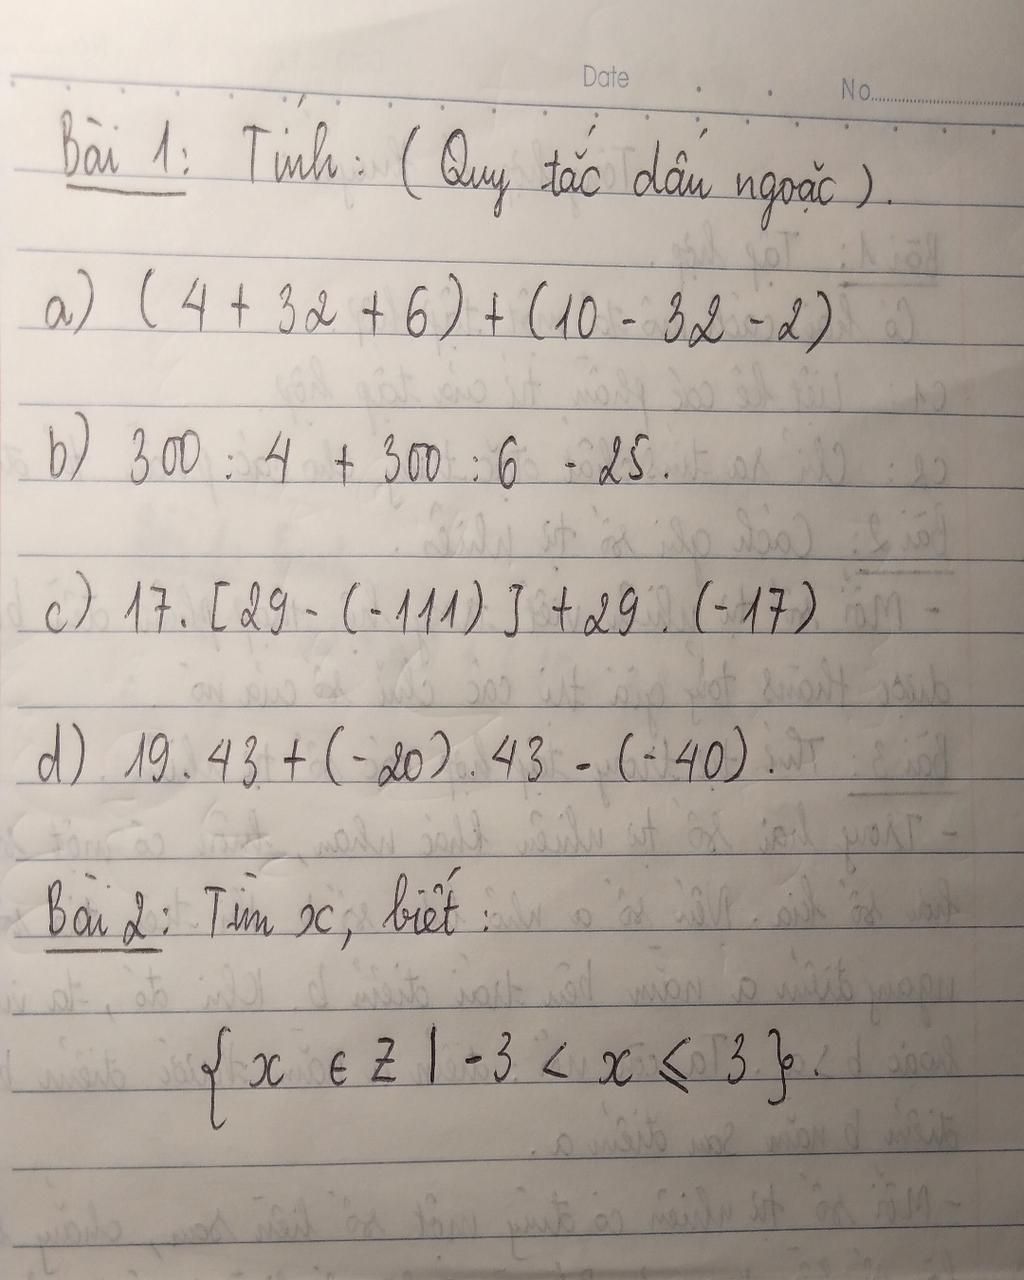 Date No.
Bài 1: Tính: (Quy tắc dấu ngoặc).
a) (4 + 32 + 6) + (10 - 32 - 2)
b) 300 : 4 + 300 : 6 - 25.
c) 17. [29 - (-111)] + 29. (-17)
d) 19. 43 + (-20). 43 - (-40).
Bài 2: Tìm x, biết:
{x ∈ Z | -3 < x ⩽ 3}.